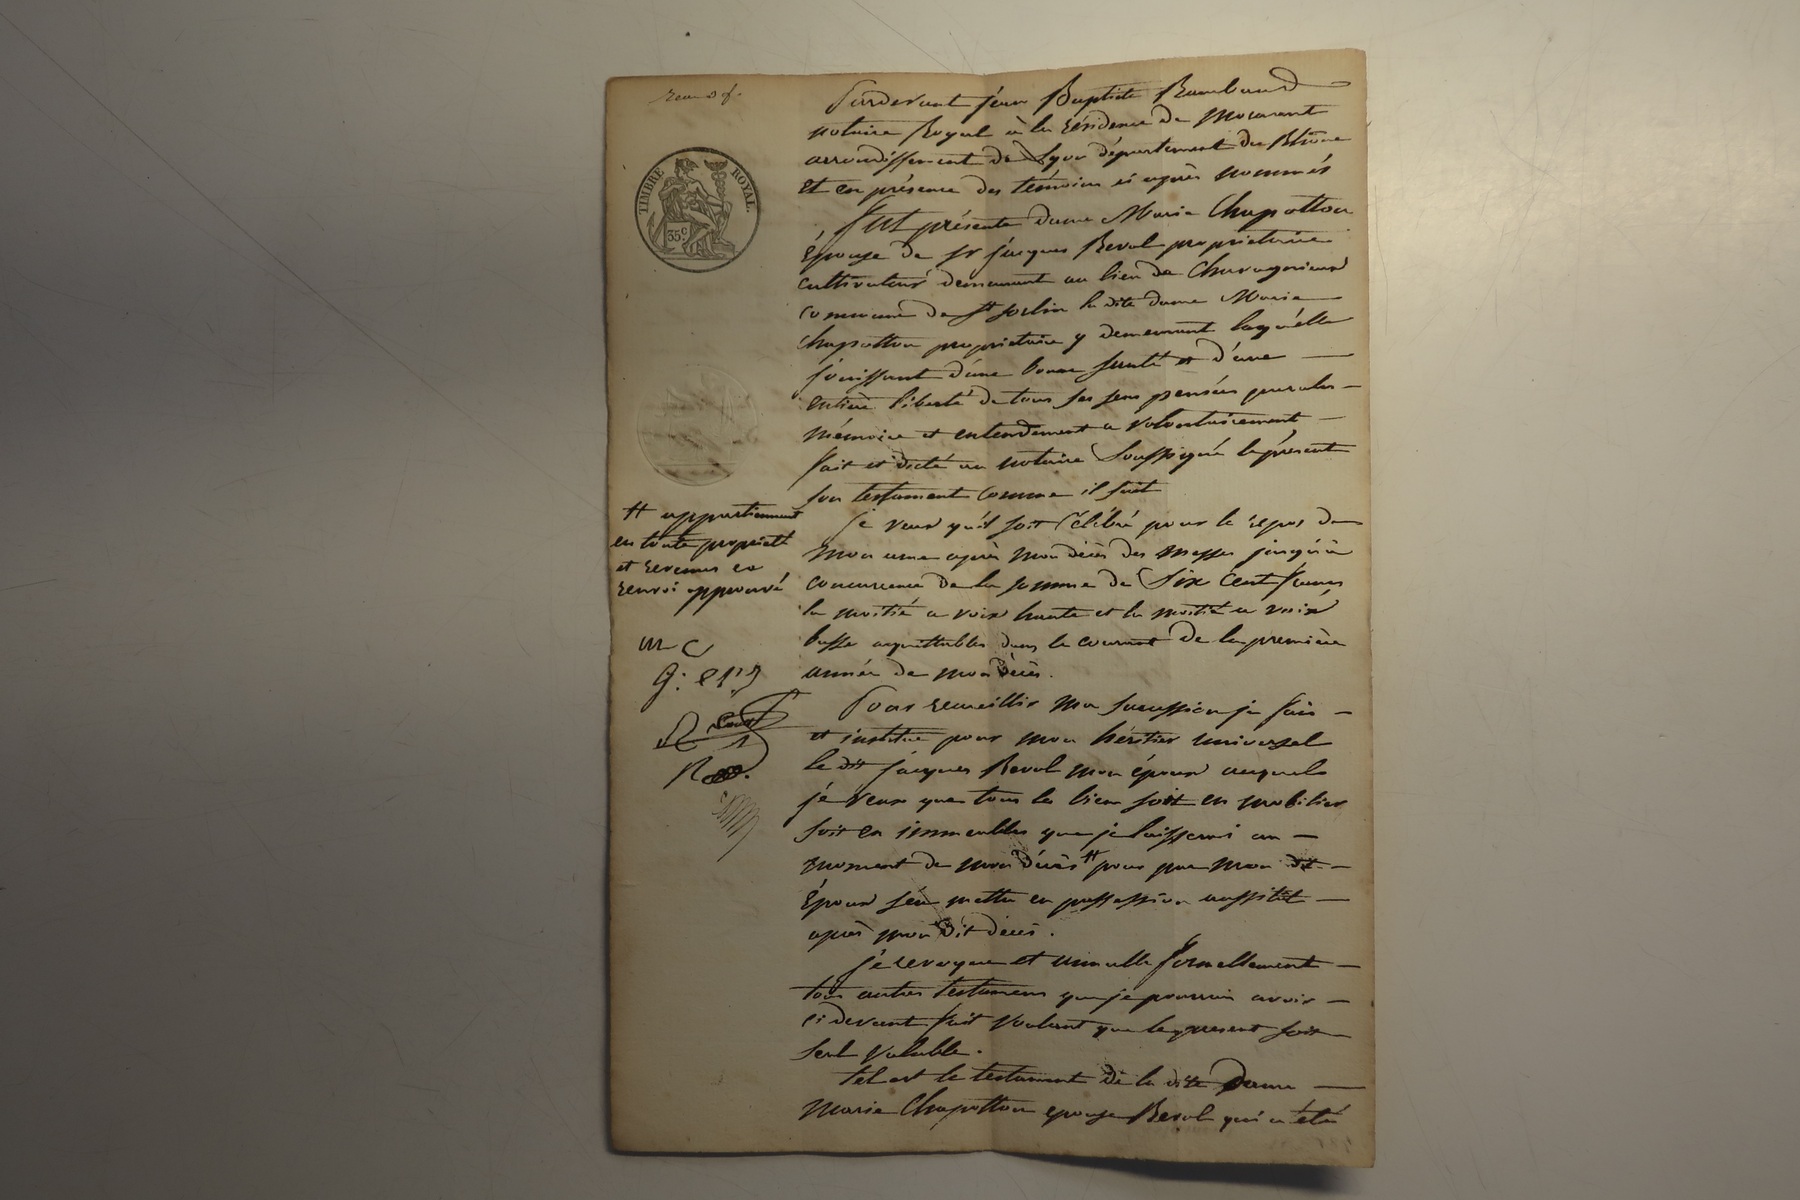 TIMBRE ROYAL.
35 c.
Pardevant Jean Baptiste Rambaud
notaire Royal à la résidence de Mornant
arrondissement de Lyon département du Rhône
et en présence des témoins ci après nommés
Fut présente dame Marie Chapotton
épouse de Sr Jacques Beral propriétaire
cultivateur demeurant au lieu de
commune de St Sorlin la dite dame Marie
Chapotton propriétaire y demeurant laquelle
jouissant d'une bonne santé et d'une
entière liberté de tous ses sens pensées paroles
mémoire et entendement a volontairement
fait et dicté au notaire soussigné le présent
son testament comme il suit
Je veux qu'il soit célébré pour le repos de
mon ame après mon décès des messes jusqu'à
concurrence de la somme de Six cent francs
la moitié a voix haute et la moitié a voix
basse acquittables dans le courant de la première
année de mon décès.
Pour recueillir ma succession je fais
et institue pour mon héritier universel
le dit Jacques Beral mon époux auquel
je veux que tous les biens soit en mobilier
soit en immeubles que je laisserai au
moment de mon décès # pour que mon dit
époux s'en mette en possession aussitot
après mon dit décès.
Je revoque et annulle formellement
tous autres testamens que je pourrais avoir
ci devant fait voulant que le present soit
seul valable.
tel est le testament de la dite Dame
Marie Chapotton epouse Beral qui a été
# appartiennent
en toute propriété
et revenus
renvoi approuvé
m C